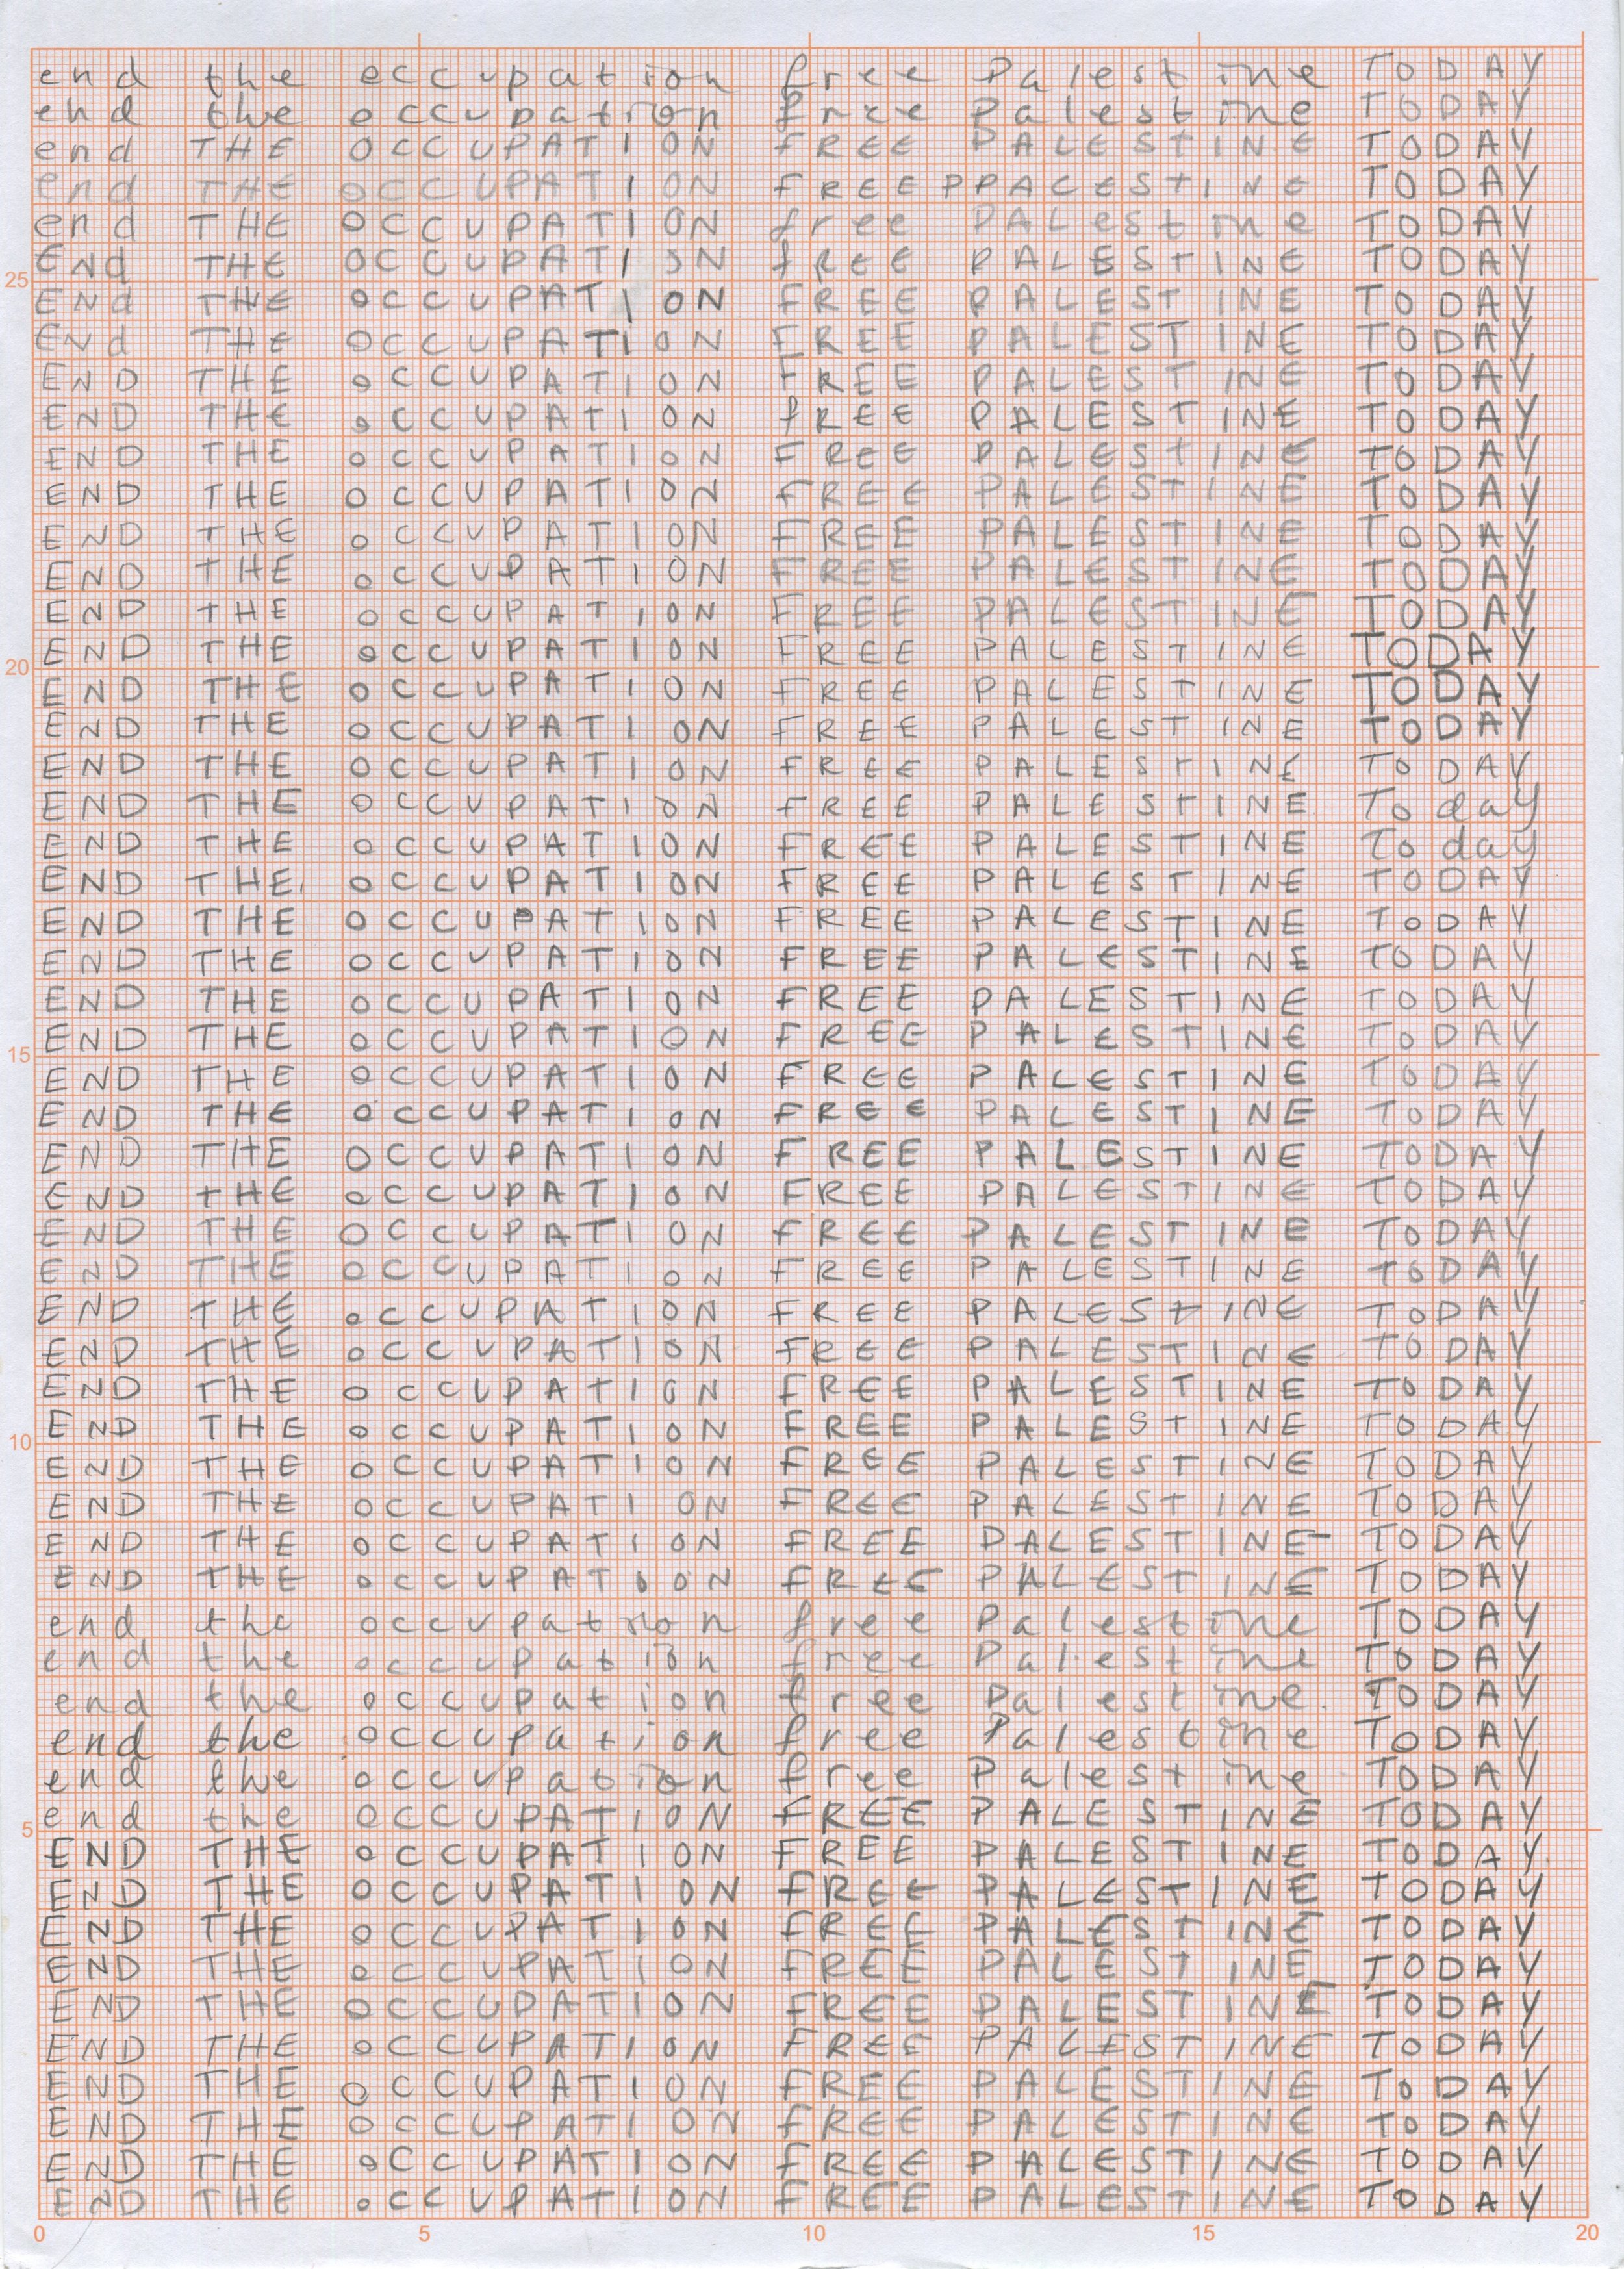 end the occupation free Palestine TODAY
end the occupation free Palestine TODAY
end THE OCCUPATION fREE PALESTINE TODAY
end THE OCCUPATION fREE PPACESTINE TODAY
end THE OCCUPATION free PALestine TODAY
ENd THE OCCUPATION fREE PALESTINE TODAY
25
ENd THE OCCUPATION FREE PALESTINE TODAY
ENd THE OCCUPATION FREE PALESTINE TODAY
END THE OCCUPATION FREE PALESTINE TODAY
END THE OCCUPATION fREE PALESTINE TODAY
END THE OCCUPATION FREE PALESTINE TODAY
END THE OCCUPATION FREE PALESTINE TODAY
END THE OCCUPATION FREE PALESTINE TODAY
END THE OCCUPATION FREE PALESTINE TODAY
END THE OCCUPATION FREE PALESTINE TODAY
END THE OCCUPATION FREE PALESTINE TODAY
20
END THE OCCUPATION FREE PALESTINE TODAY
END THE OCCUPATION FREE PALESTINE TODAY
END THE OCCUPATION FREE PALESTINE TODAY
END THE OCCUPATION FREE PALESTINE Today
END THE OCCUPATION FREE PALESTINE Today
END THE OCCUPATION FREE PALESTINE TODAY
END THE OCCUPATION FREE PALESTINE TODAY
END THE OCCUPATION FREE PALESTINE TODAY
END THE OCCUPATION FREE PALESTINE TODAY
END THE OCCUPATION FREE PALESTINE TODAY
15
END THE OCCUPATION FREE PALESTINE TODAY
END THE OCCUPATION FREE PALESTINE TODAY
END THE OCCUPATION FREE PALESTINE TODAY
END THE OCCUPATION FREE PALESTINE TODAY
END THE OCCUPATION FREE PALESTINE TODAY
END THE OCCUPATION FREE PALESTINE TODAY
END THE OCCUPATION FREE PALESTINE TODAY
END THE OCCUPATION FREE PALESTINE TODAY
END THE OCCUPATION FREE PALESTINE TODAY
END THE OCCUPATION FREE PALESTINE TODAY
10
END THE OCCUPATION FREE PALESTINE TODAY
END THE OCCUPATION FREE PALESTINE TODAY
END THE OCCUPATION FREE PALESTINE TODAY
END THE OCCUPATION FREE PALESTINE TODAY
end the occupation free Palestine TODAY
end the occupation free Palestine TODAY
end the occupation free Palestine TODAY
end the occupation free Palestine TODAY
end the occupation free Palestine TODAY
end the OCCUPATION FREE PALESTINE TODAY
5
END THE OCCUPATION FREE PALESTINE TODAY
END THE OCCUPATION FREE PALESTINE TODAY
END THE OCCUPATION FREE PALESTINE TODAY
END THE OCCUPATION FREE PALESTINE TODAY
END THE OCCUPATION FREE PALESTINE TODAY
END THE OCCUPATION FREE PALESTINE TODAY
END THE OCCUPATION FREE PALESTINE TODAY
END THE OCCUPATION FREE PALESTINE TODAY
END THE OCCUPATION FREE PALESTINE TODAY
END THE OCCUPATION FREE PALESTINE TODAY
0 5 10 15 20